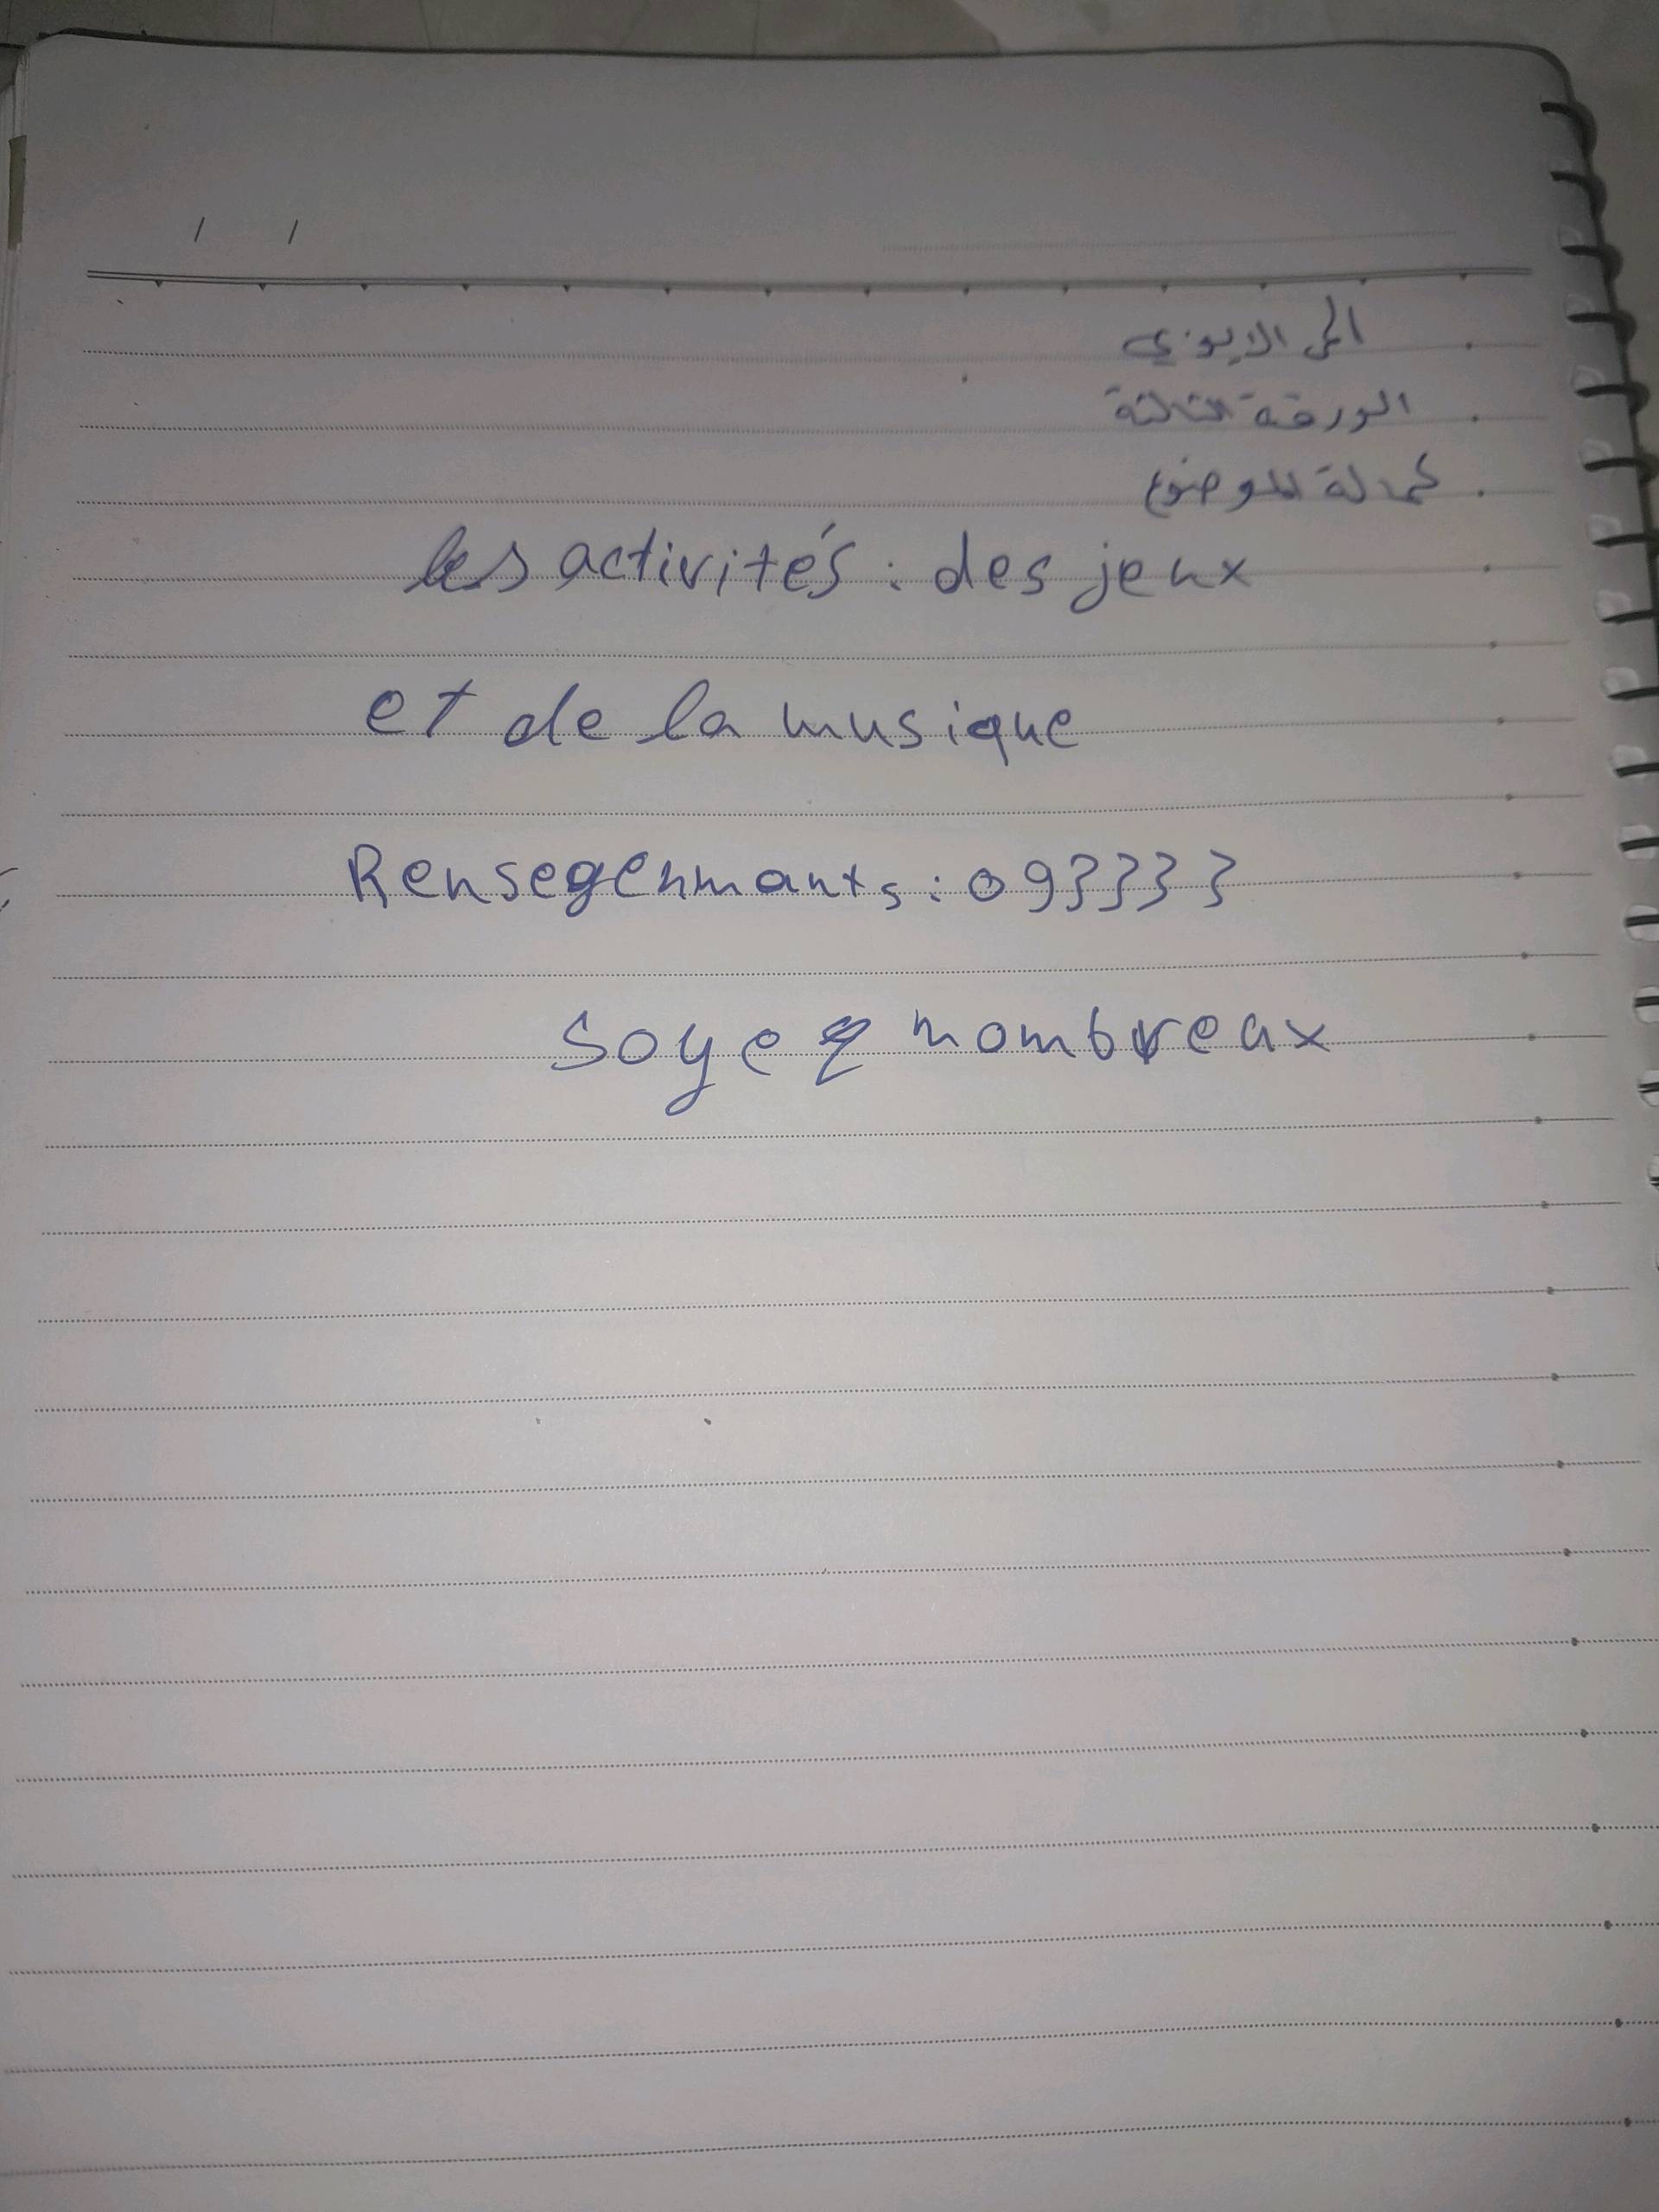 الورقة الثالثة
كمالة للموضوع
les activités : des jeux
et de la musique
Rensegenmants : 093333
soyez nombreax